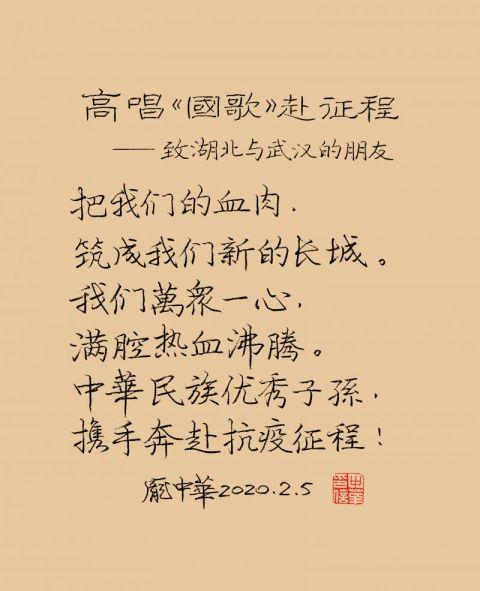 高唱《國歌》赴征程
——致湖北与武汉的朋友
把我们的血肉,
筑成我们新的长城。
我们萬衆一心,
满腔热血沸腾。
中華民族优秀子孫,
携手奔赴抗疫征程!
龐中華2020.2.5